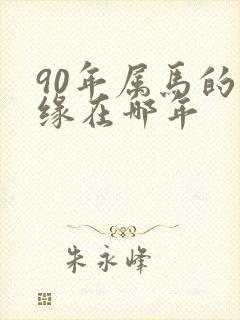 90年属马的
缘在哪年
朱永峰